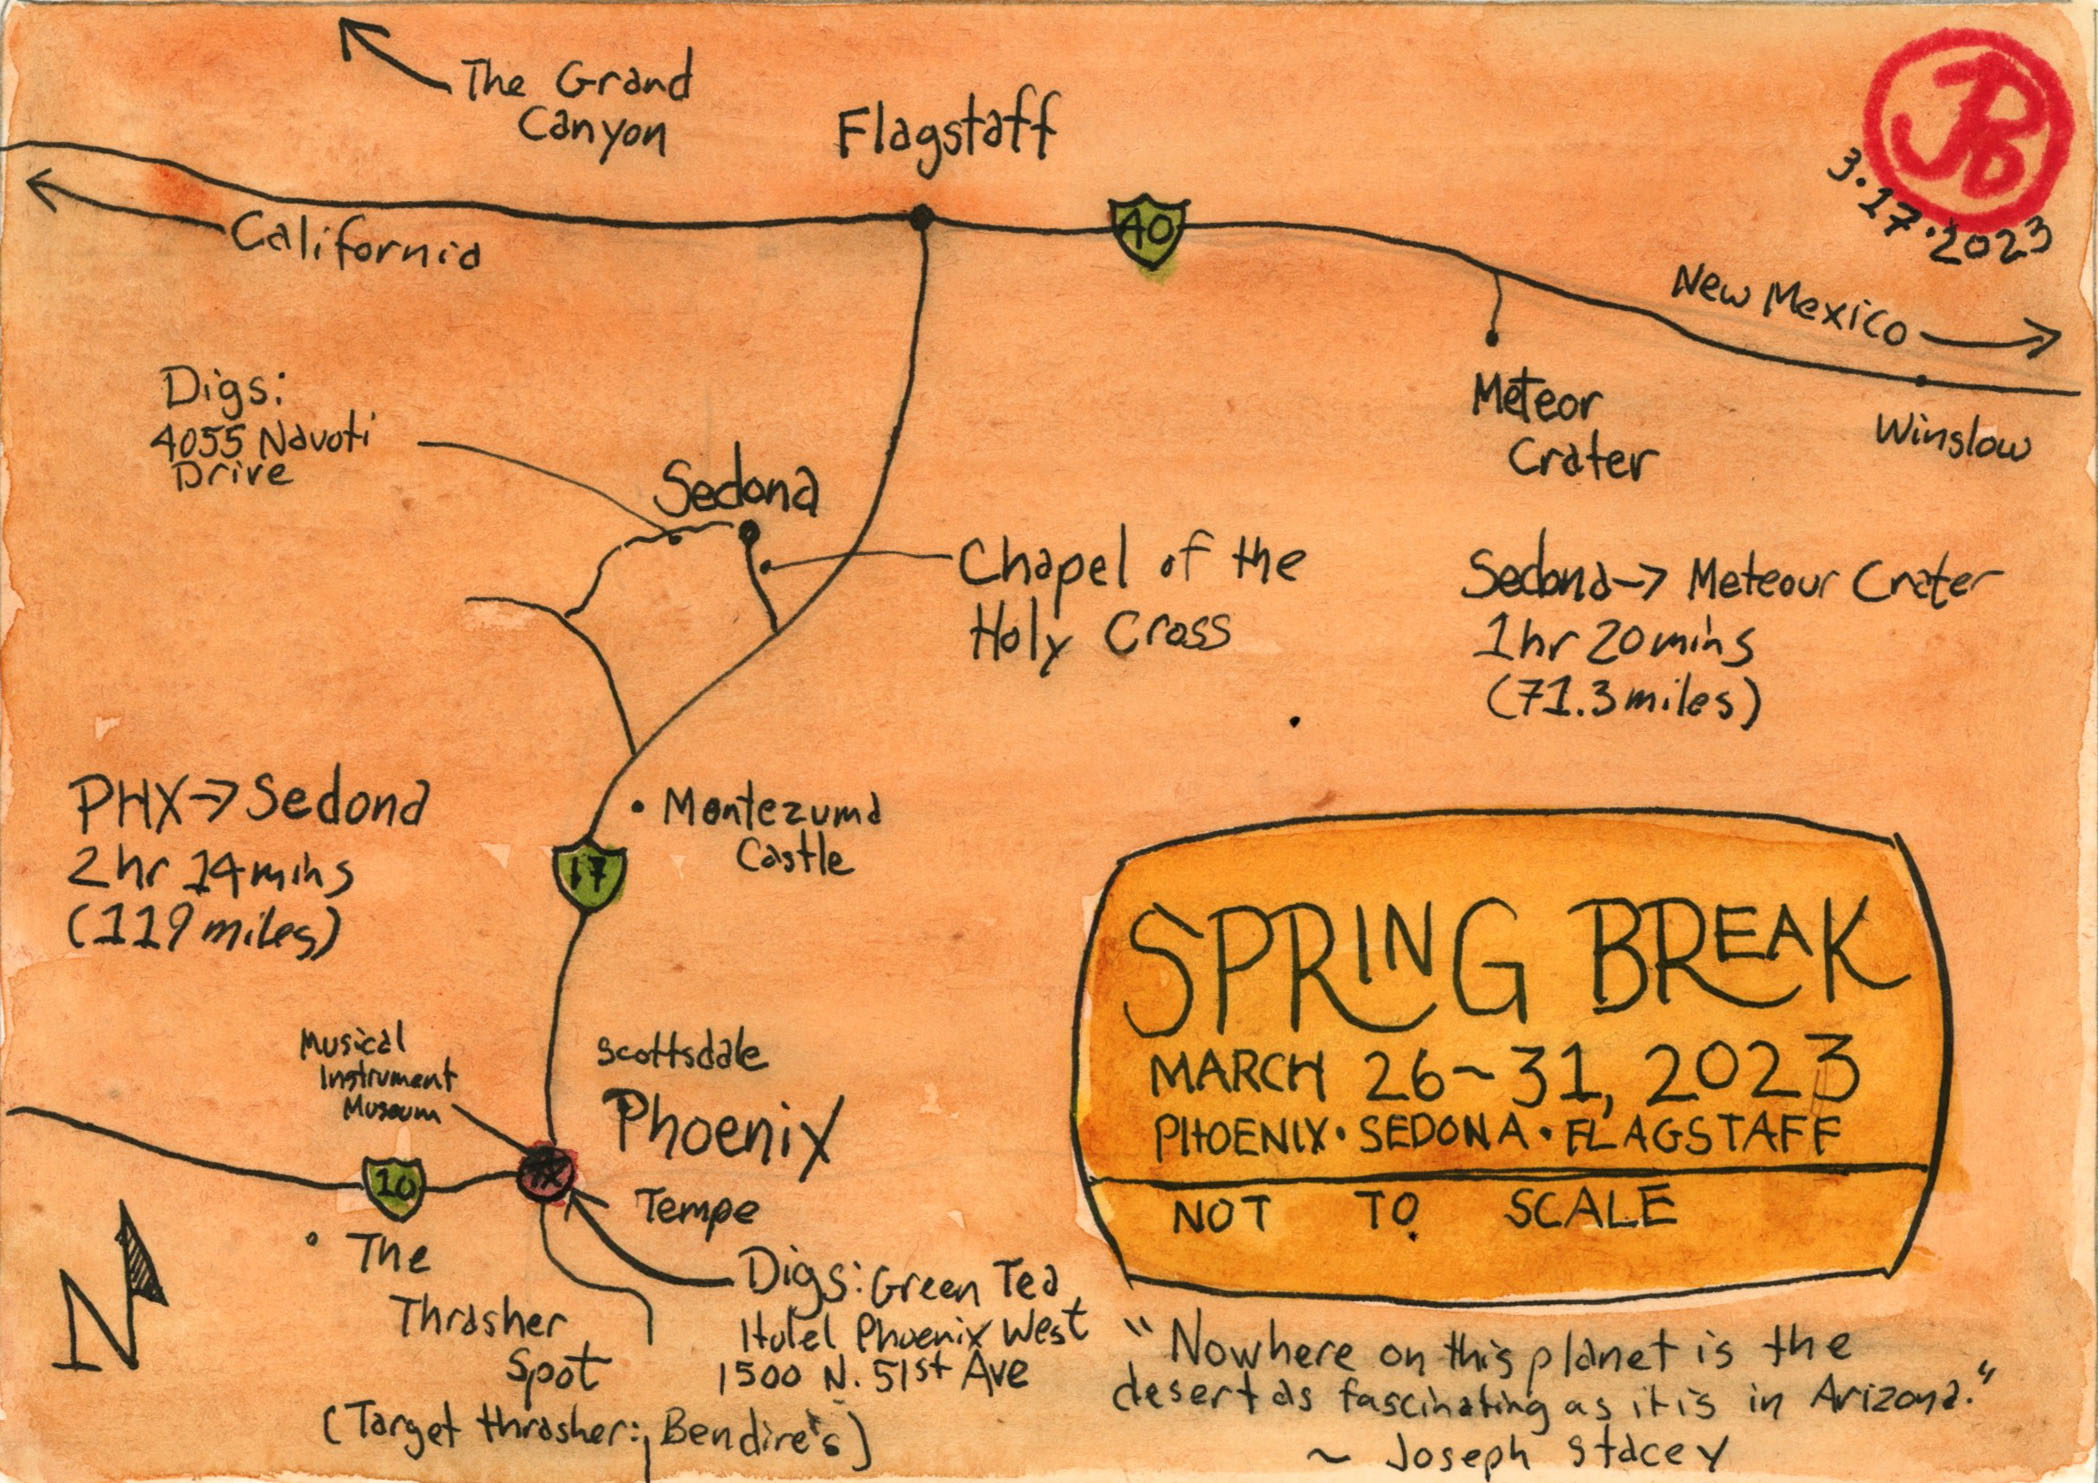 The Grand
Canyon
Flagstaff
JPB
3.17.2023
40
California
New Mexico
Winslow
Meteor
Crater
Digs:
4055 Navoti
Drive
Sedona
Chapel of the
Holy Cross
Sedona→ Meteour Crater
1hr 20mins
(71.3 miles)
PHX→Sedona
2 hr 14 mins
(119 miles)
Montezuma
Castle
17
SPRING BREAK
MARCH 26~31, 2023
PHOENIX • SEDONA • FLAGSTAFF
NOT TO SCALE
Musical
Instrument
Museum
Scottsdale
Phoenix
Tempe
10
N
The
Thrasher
Spot
(Target thrasher: Bendire's)
Digs: Green Tea
Hotel Phoenix West
1500 N. 51st Ave
"Nowhere on this planet is the
desert as fascinating as it is in Arizona."
~ Joseph Stacey